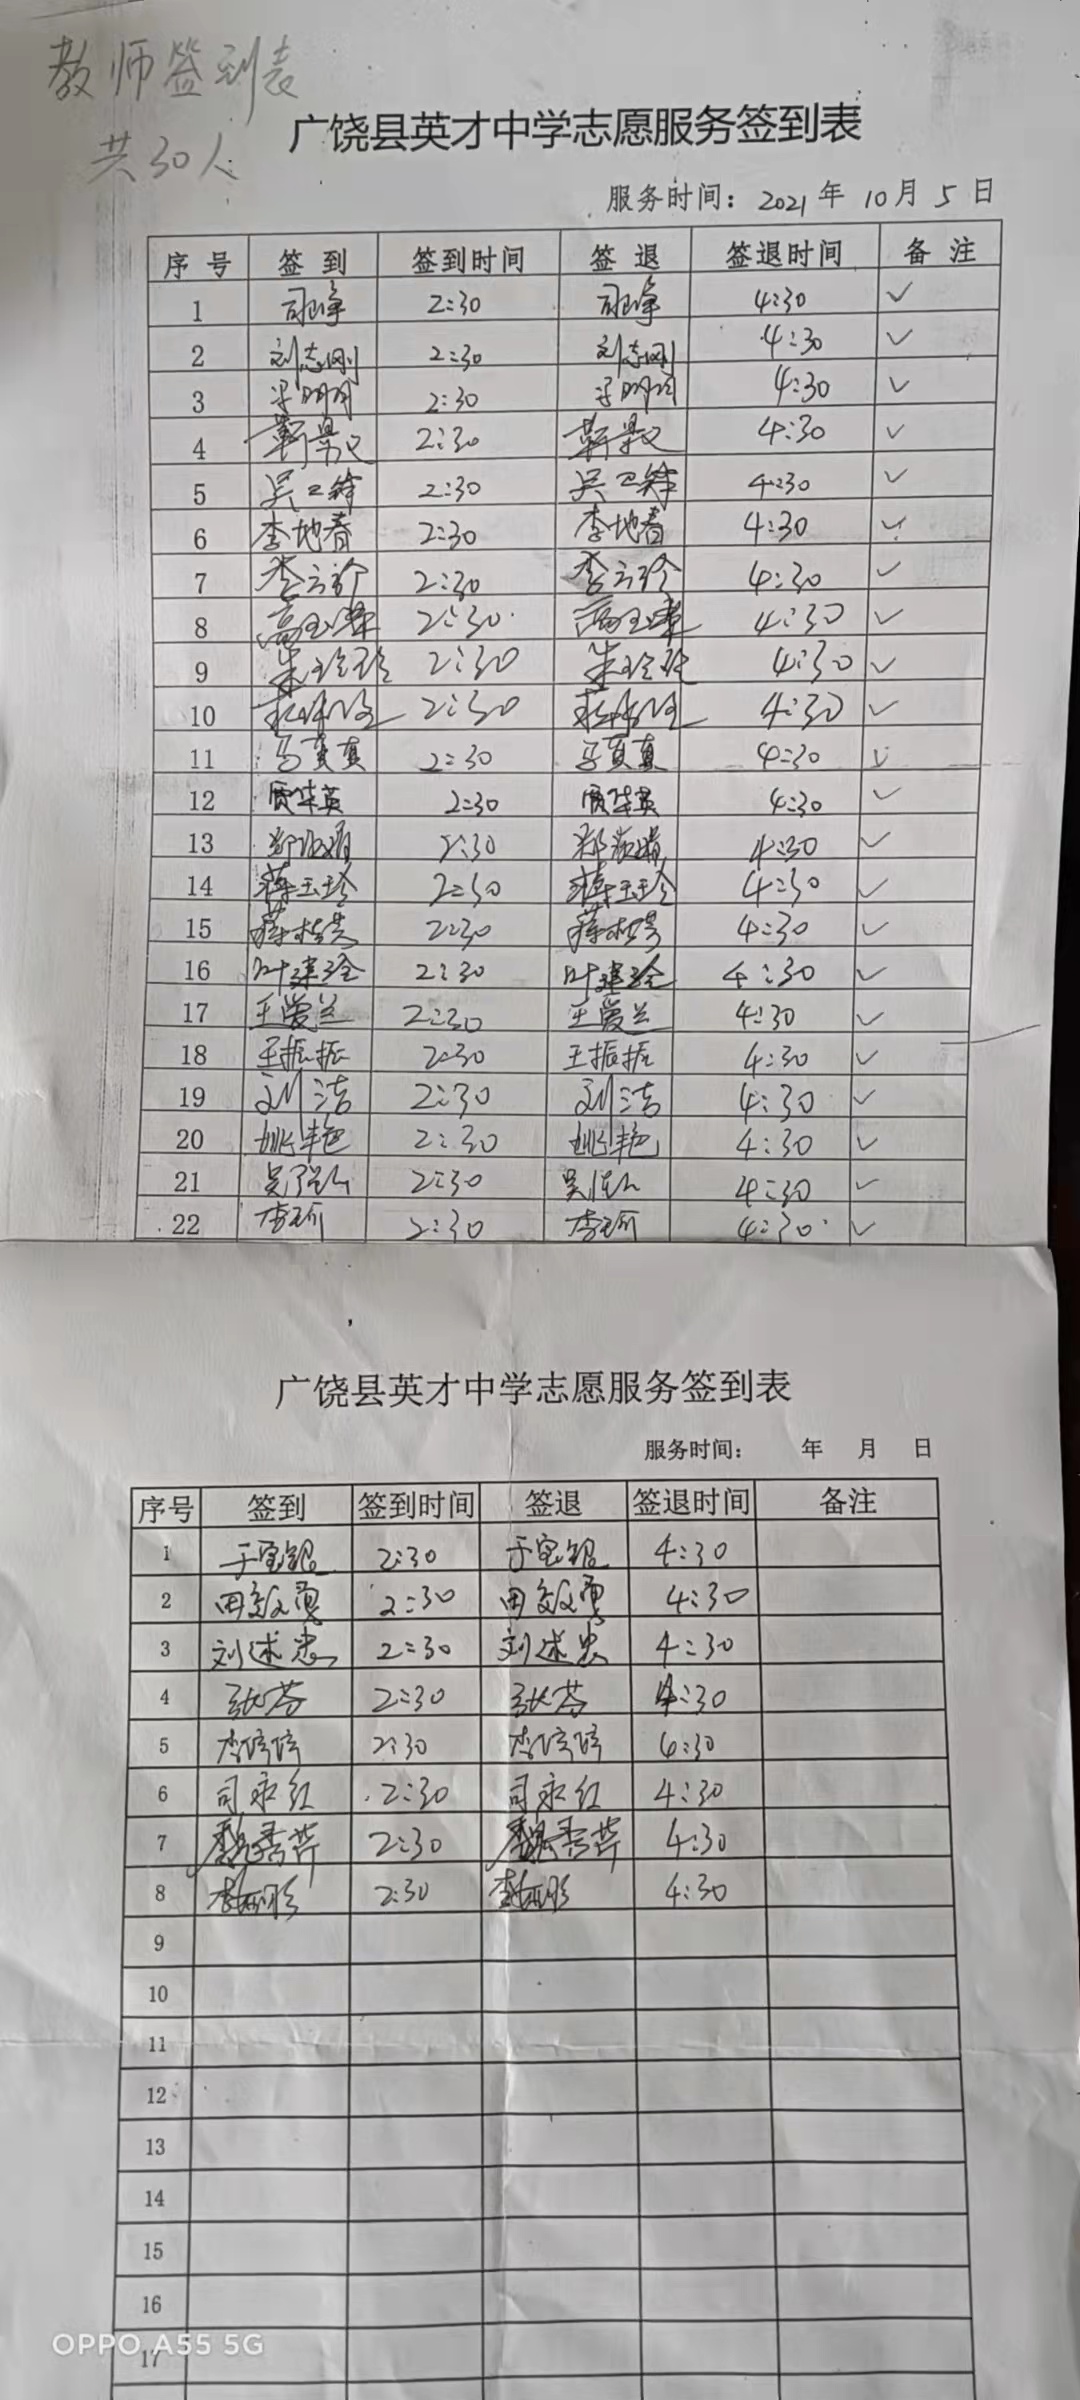 教师签到表
共30人
广饶县英才中学志愿服务签到表
服务时间: 2021年 10月 5日
序号 签到 签到时间 签退 签退时间 备注
1 2:30 4:30 ✓
2 刘志刚 2:30 刘志刚 4:30 ✓
3 2:30 4:30 ✓
4 2:30 4:30 ✓
5 2:30 4:30 ✓
6 李地春 2:30 李地春 4:30 ✓
7 2:30 4:30 ✓
8 2:30 4:30 ✓
9 朱玲玲 2:30 朱玲玲 4:30 ✓
10 2:30 4:30 ✓
11 马真真 2:30 马真真 4:30 ✓
12 2:30 4:30 ✓
13 2:30 4:30 ✓
14 蒋玉玲 2:30 蒋玉玲 4:30 ✓
15 2:30 4:30 ✓
16 2:30 4:30 ✓
17 王爱兰 2:30 王爱兰 4:30 ✓
18 王振振 2:30 王振振 4:30 ✓
19 刘洁 2:30 刘洁 4:30 ✓
20 姚艳 2:30 姚艳 4:30 ✓
21 2:30 4:30 ✓
22 2:30 4:30 ✓
广饶县英才中学志愿服务签到表
服务时间: 年 月 日
序号 签到 签到时间 签退 签退时间 备注
1 于宝银 2:30 于宝银 4:30
2 田效勇 2:30 田效勇 4:30
3 刘述忠 2:30 刘述忠 4:30
4 张芬 2:30 张芬 4:30
5 李婷婷 2:30 李婷婷 4:30
6 司永红 2:30 司永红 4:30
7 魏秀芹 2:30 魏秀芹 4:30
8 2:30 4:30
9
10
11
12
13
14
15
16
17
OPPO A55 5G